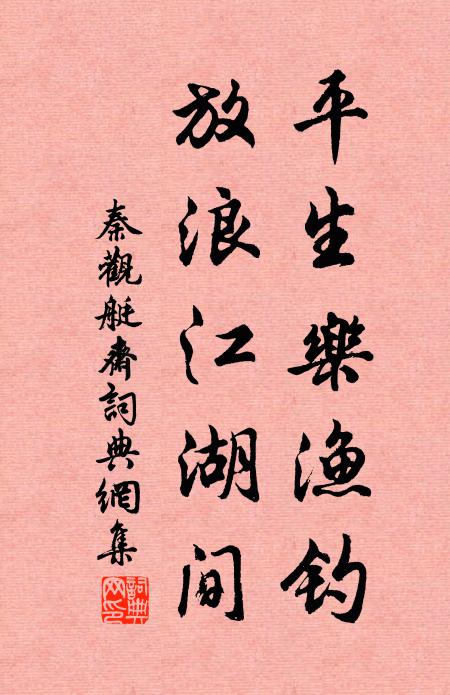 平生樂漁釣
放浪江湖間
秦觀艇齋詞典網集
詞典網印